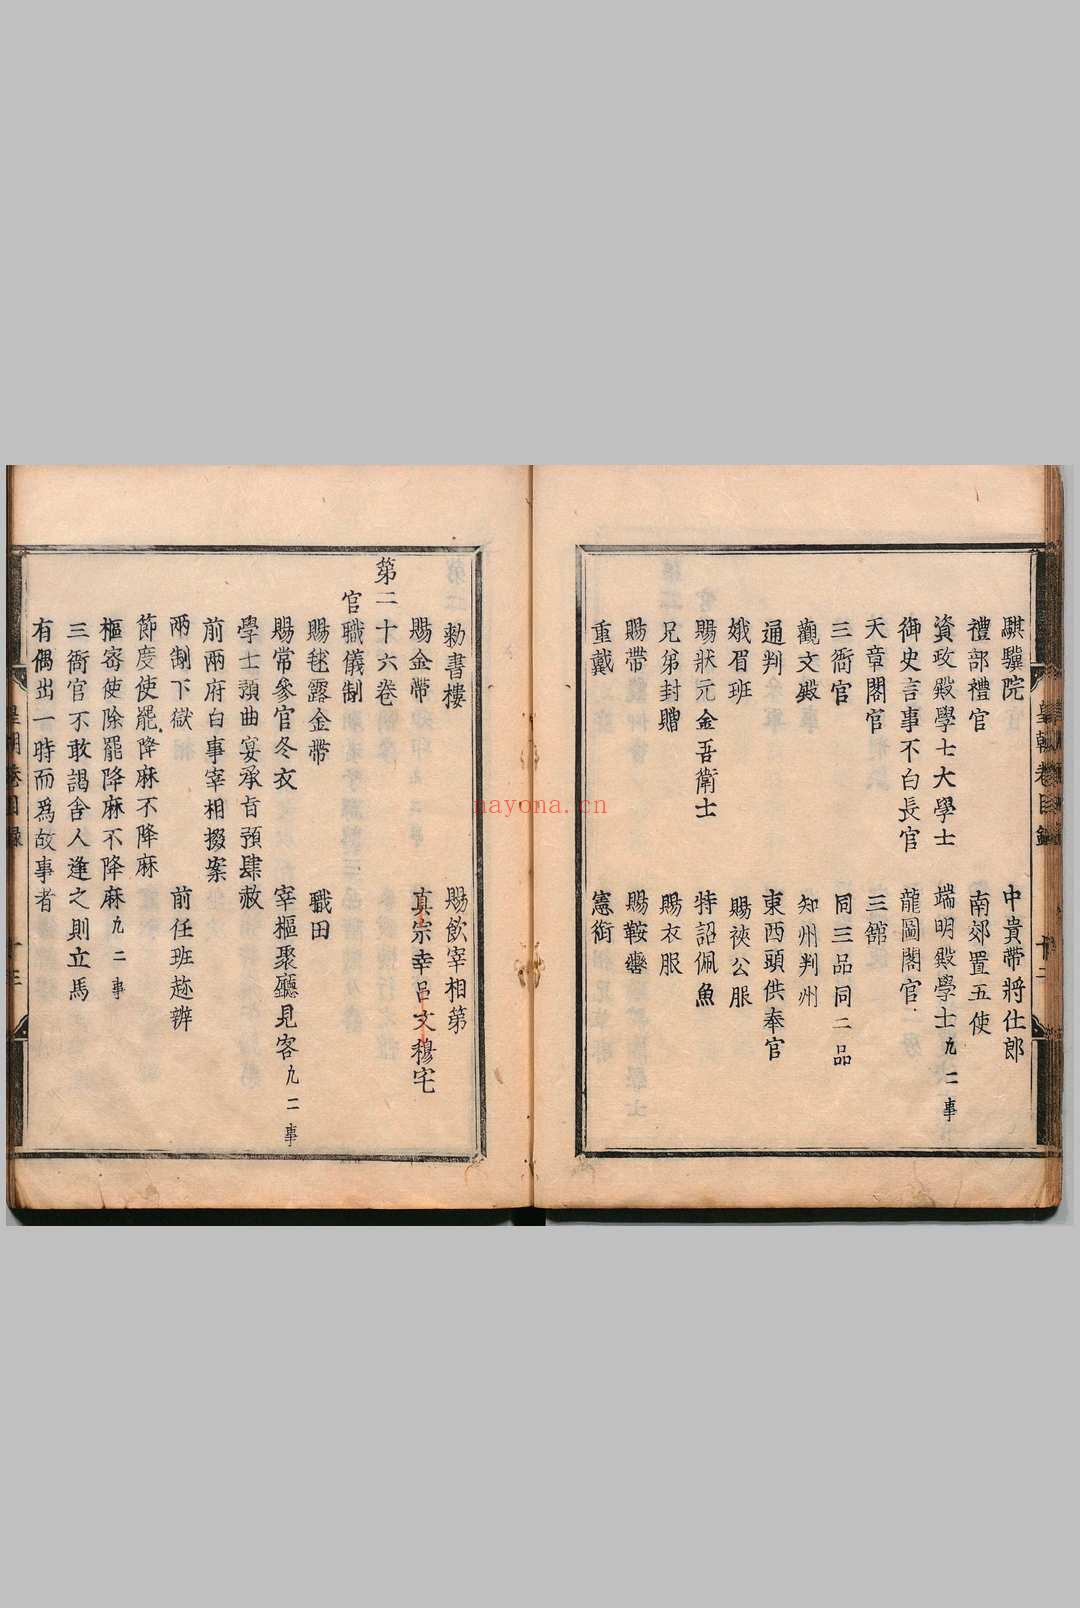 騏驥院　中貴帶將仕郎
禮部禮官　南郊置五使
資政殿學士大學士　端明殿學士九二事
御史言事不白長官　龍圖閣官
天章閣官　三館
三衙官　同三品同二品
觀文殿　知州判州
通判　東西頭供奉官
娥眉班　賜裌公服
賜狀元金吾衛士　特詔佩魚
兄弟封贈　賜衣服
賜帶　賜鞍轡
重戴　憲銜
勅書樓　賜飲宰相第
賜金帶　真宗幸呂文穆宅
第二十六卷
官職儀制
賜毬露金帶　職田
賜常參官冬衣　宰樞聚廳見客九二事
學士預曲宴承旨預肆赦
前兩府白事宰相掇案
兩制下獄　前任班趂辨
節度使罷降麻不降麻
樞密使除罷降麻不降麻九二事
三衙官不敢謁舍人逢之則立馬
有偶出一時而爲故事者
皇朝卷目錄
nayona.cn